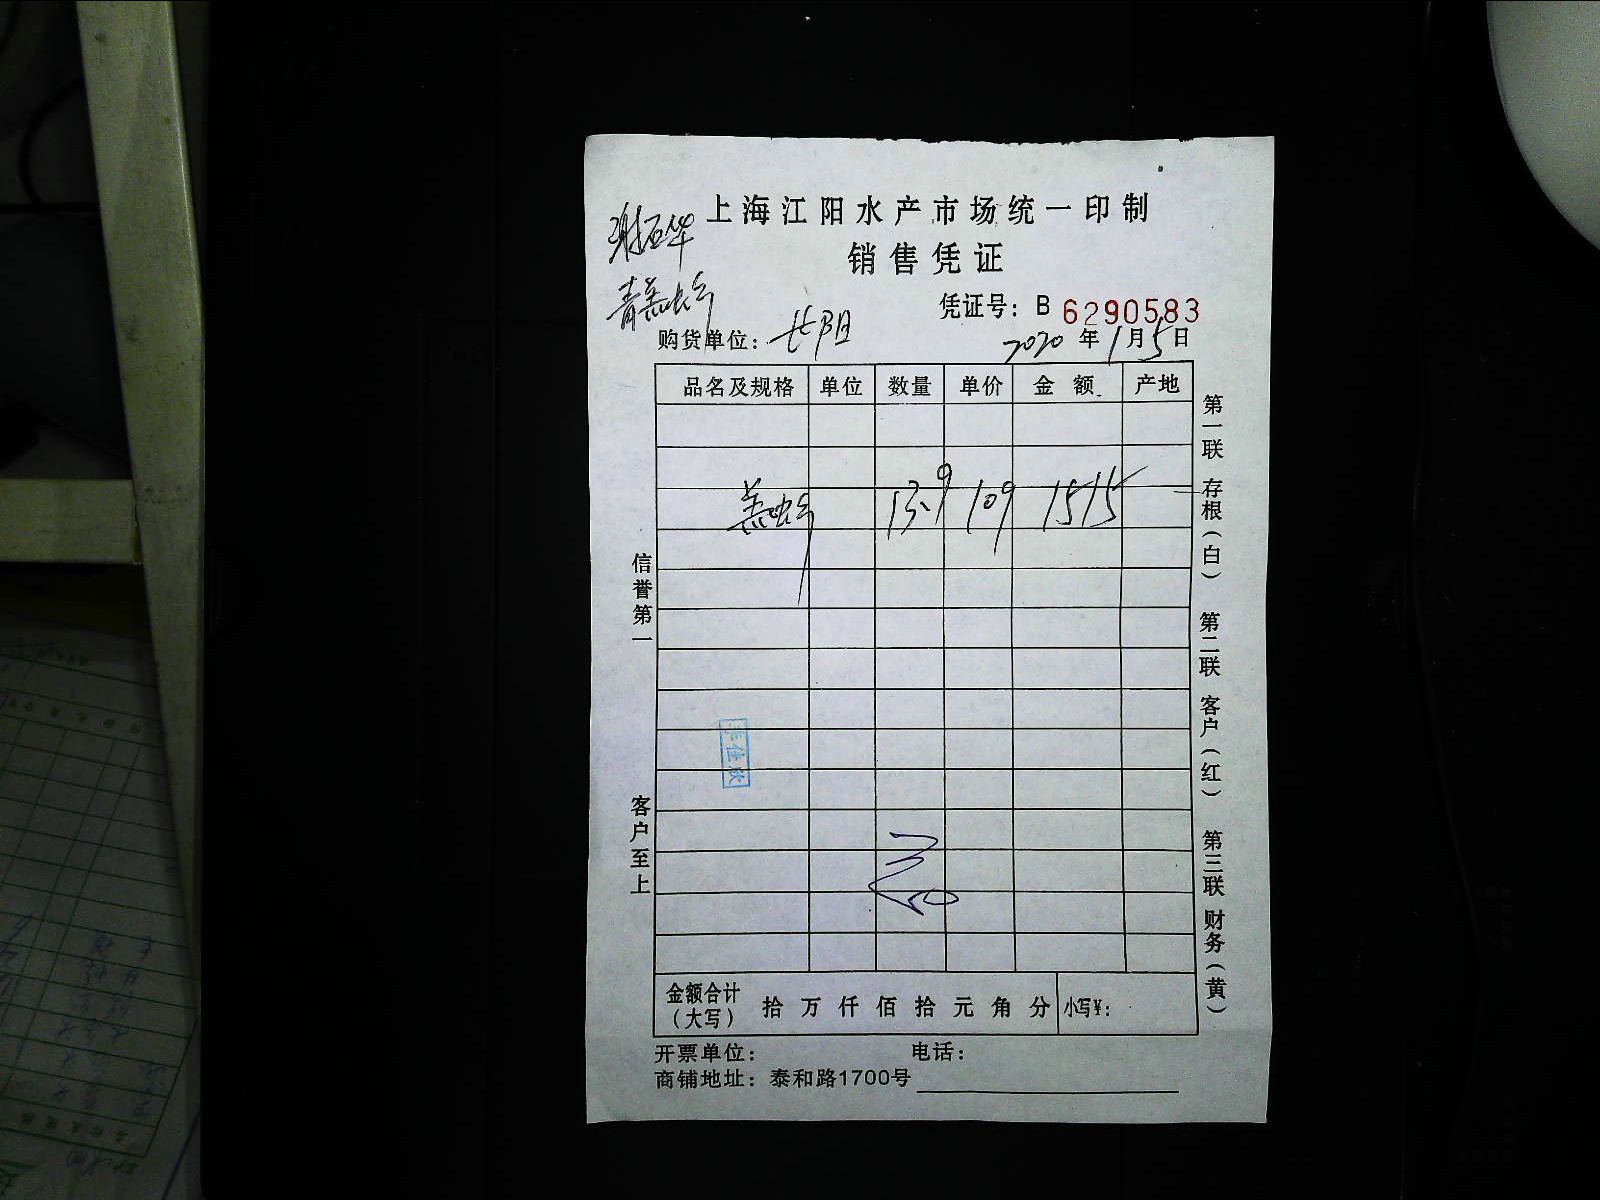 上海江阳水产市场统一印制
销售凭证
谢石华
青羔蚧
凭证号：B 6290583
购货单位：长阳
2020 年 1 月 5 日
品名及规格 单位 数量 单价 金额 产地
13.9 109 1515
信誉第一
客户至上
第一联 存根（白） 第二联 客户（红） 第三联 财务（黄）
佳欣
金额合计（大写） 拾 万 仟 佰 拾 元 角 分 小写¥：
开票单位： 电话：
商铺地址：泰和路1700号